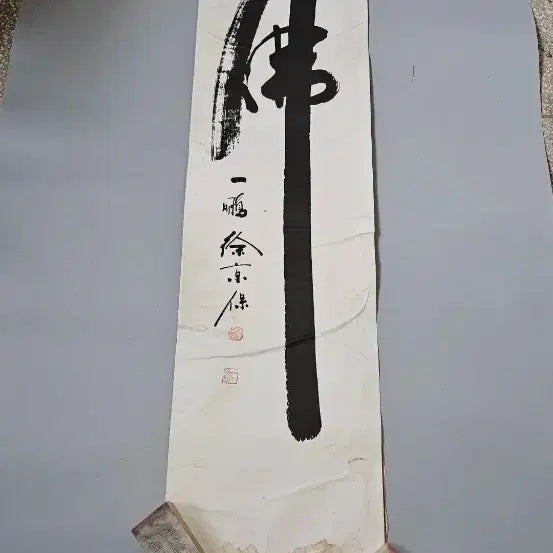 佛
一鵬
徐京保